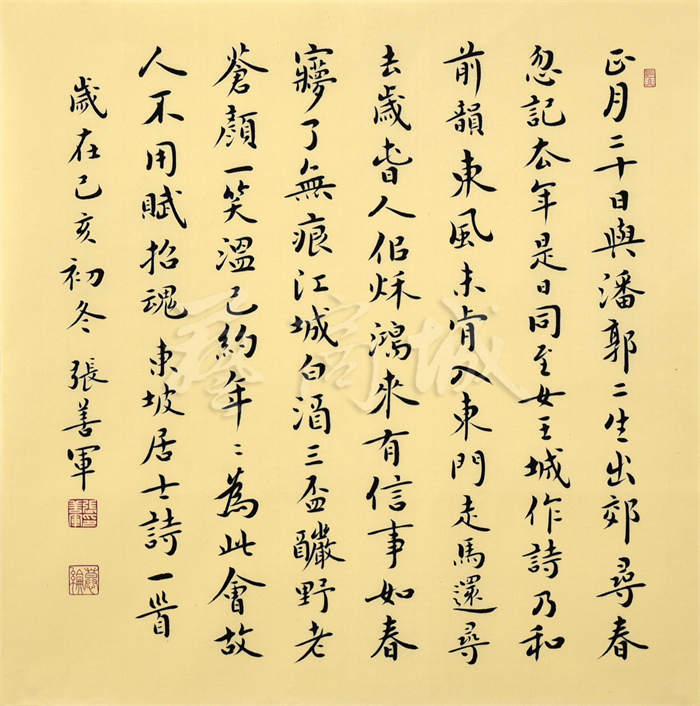 正月二十日與潘郭二生出郊尋春
忽記去年是日同至女王城作詩乃和
前韻東風未肯入東門走馬還尋
去歲邨人佀秌鴻來有信事如春
夢了無痕江城白酒三盃釅野老
蒼顏一笑溫已約年〻為此會故
人不用賦招魂 東坡居士詩一首
歲在己亥初冬 張善軍
藝商城